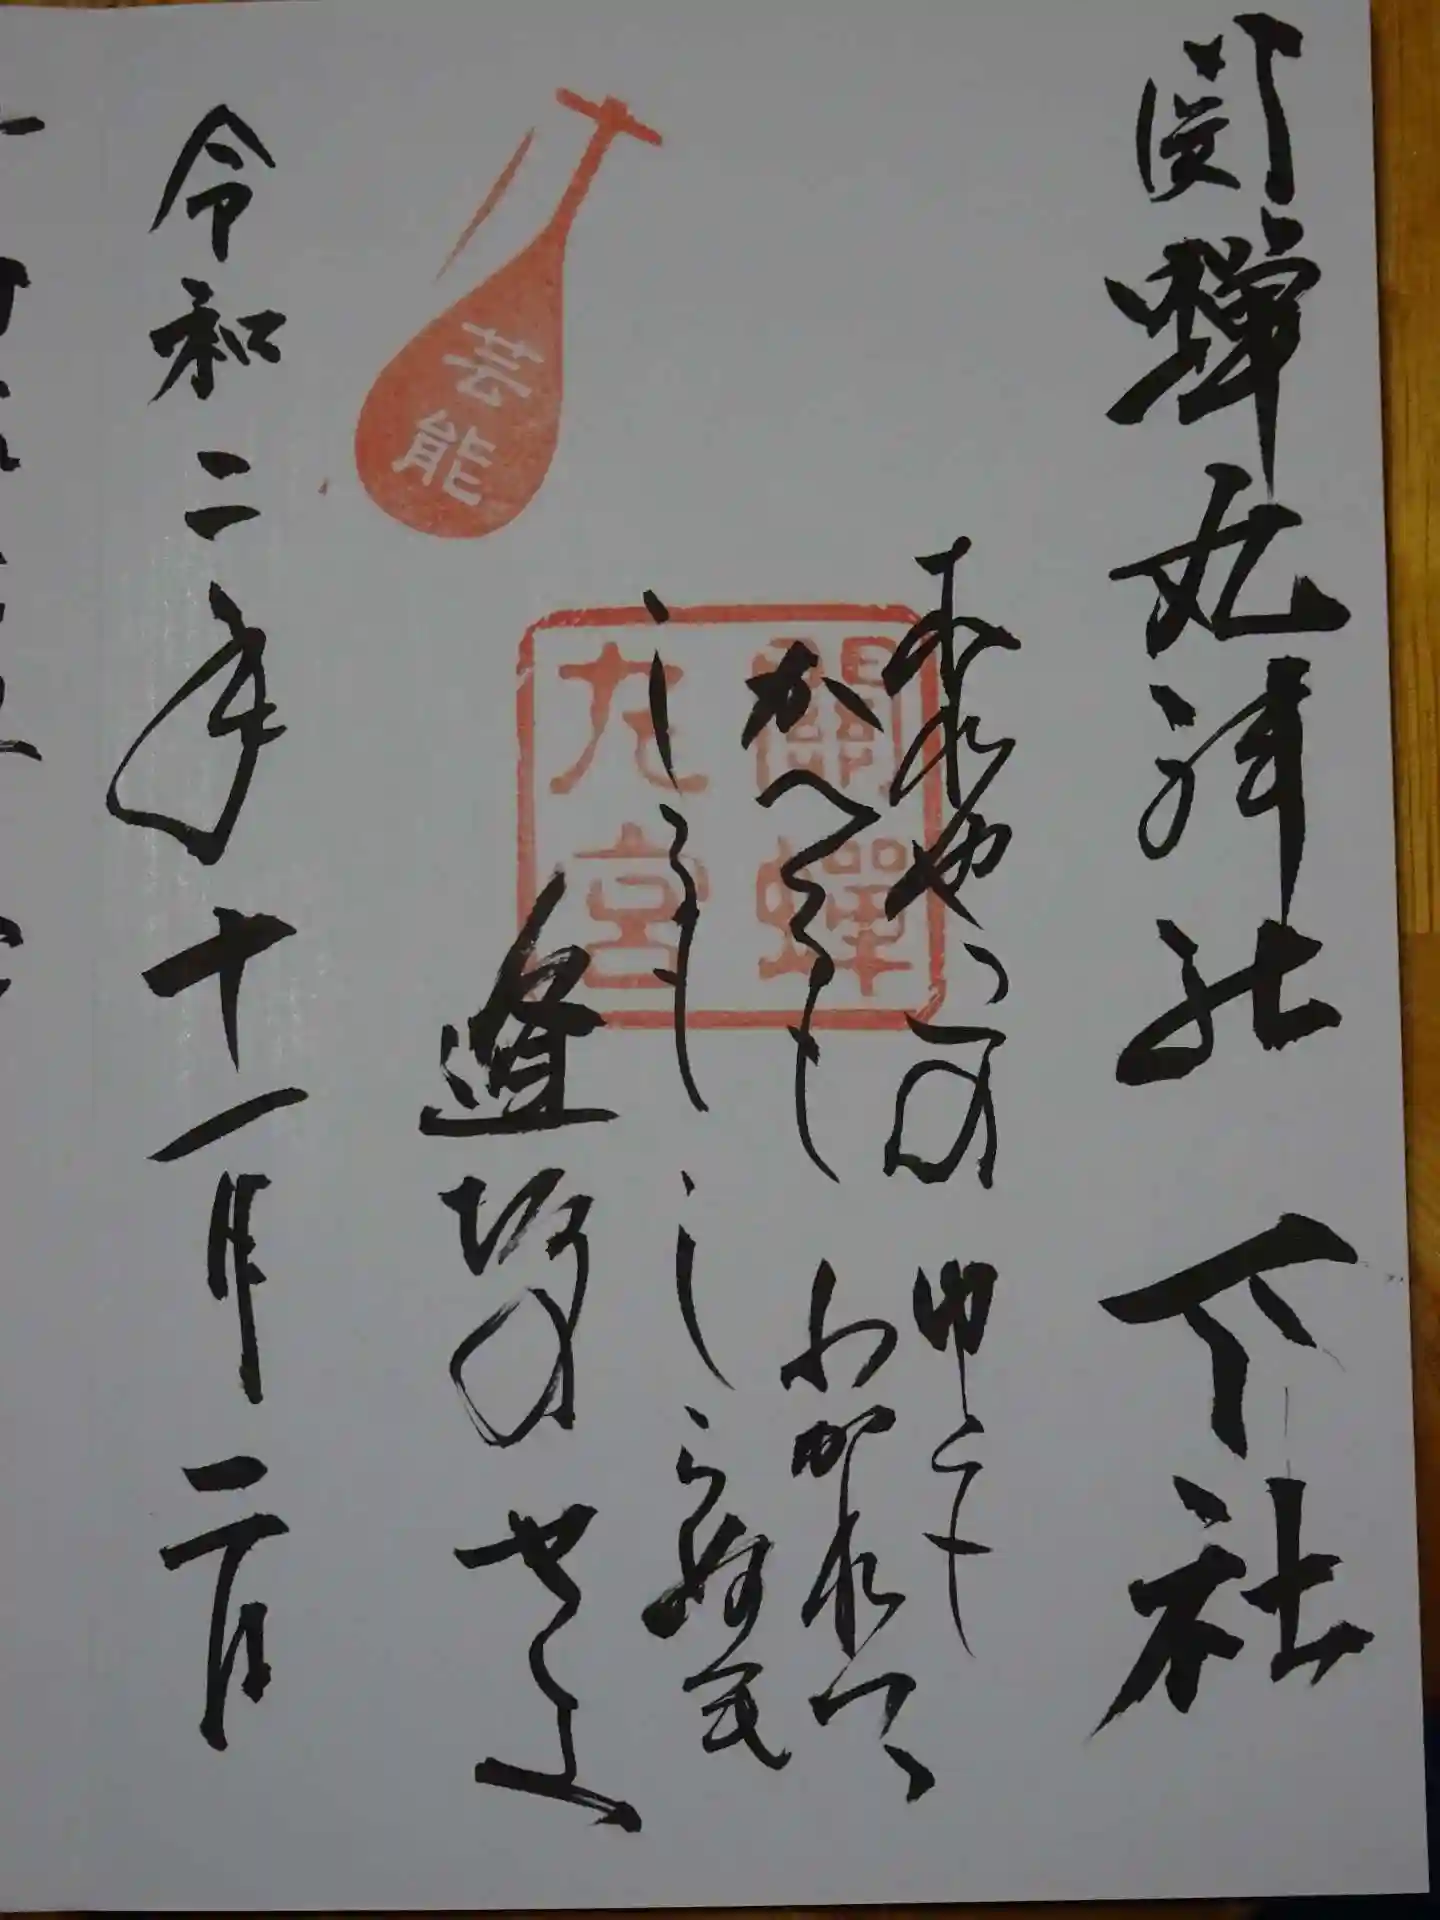 関蝉丸神社 下社
これやこの ゆくも
かへるも わかれては
しるもしらぬも
逢坂のせき
令和二年十一月二日
芸能
關蝉
丸宮